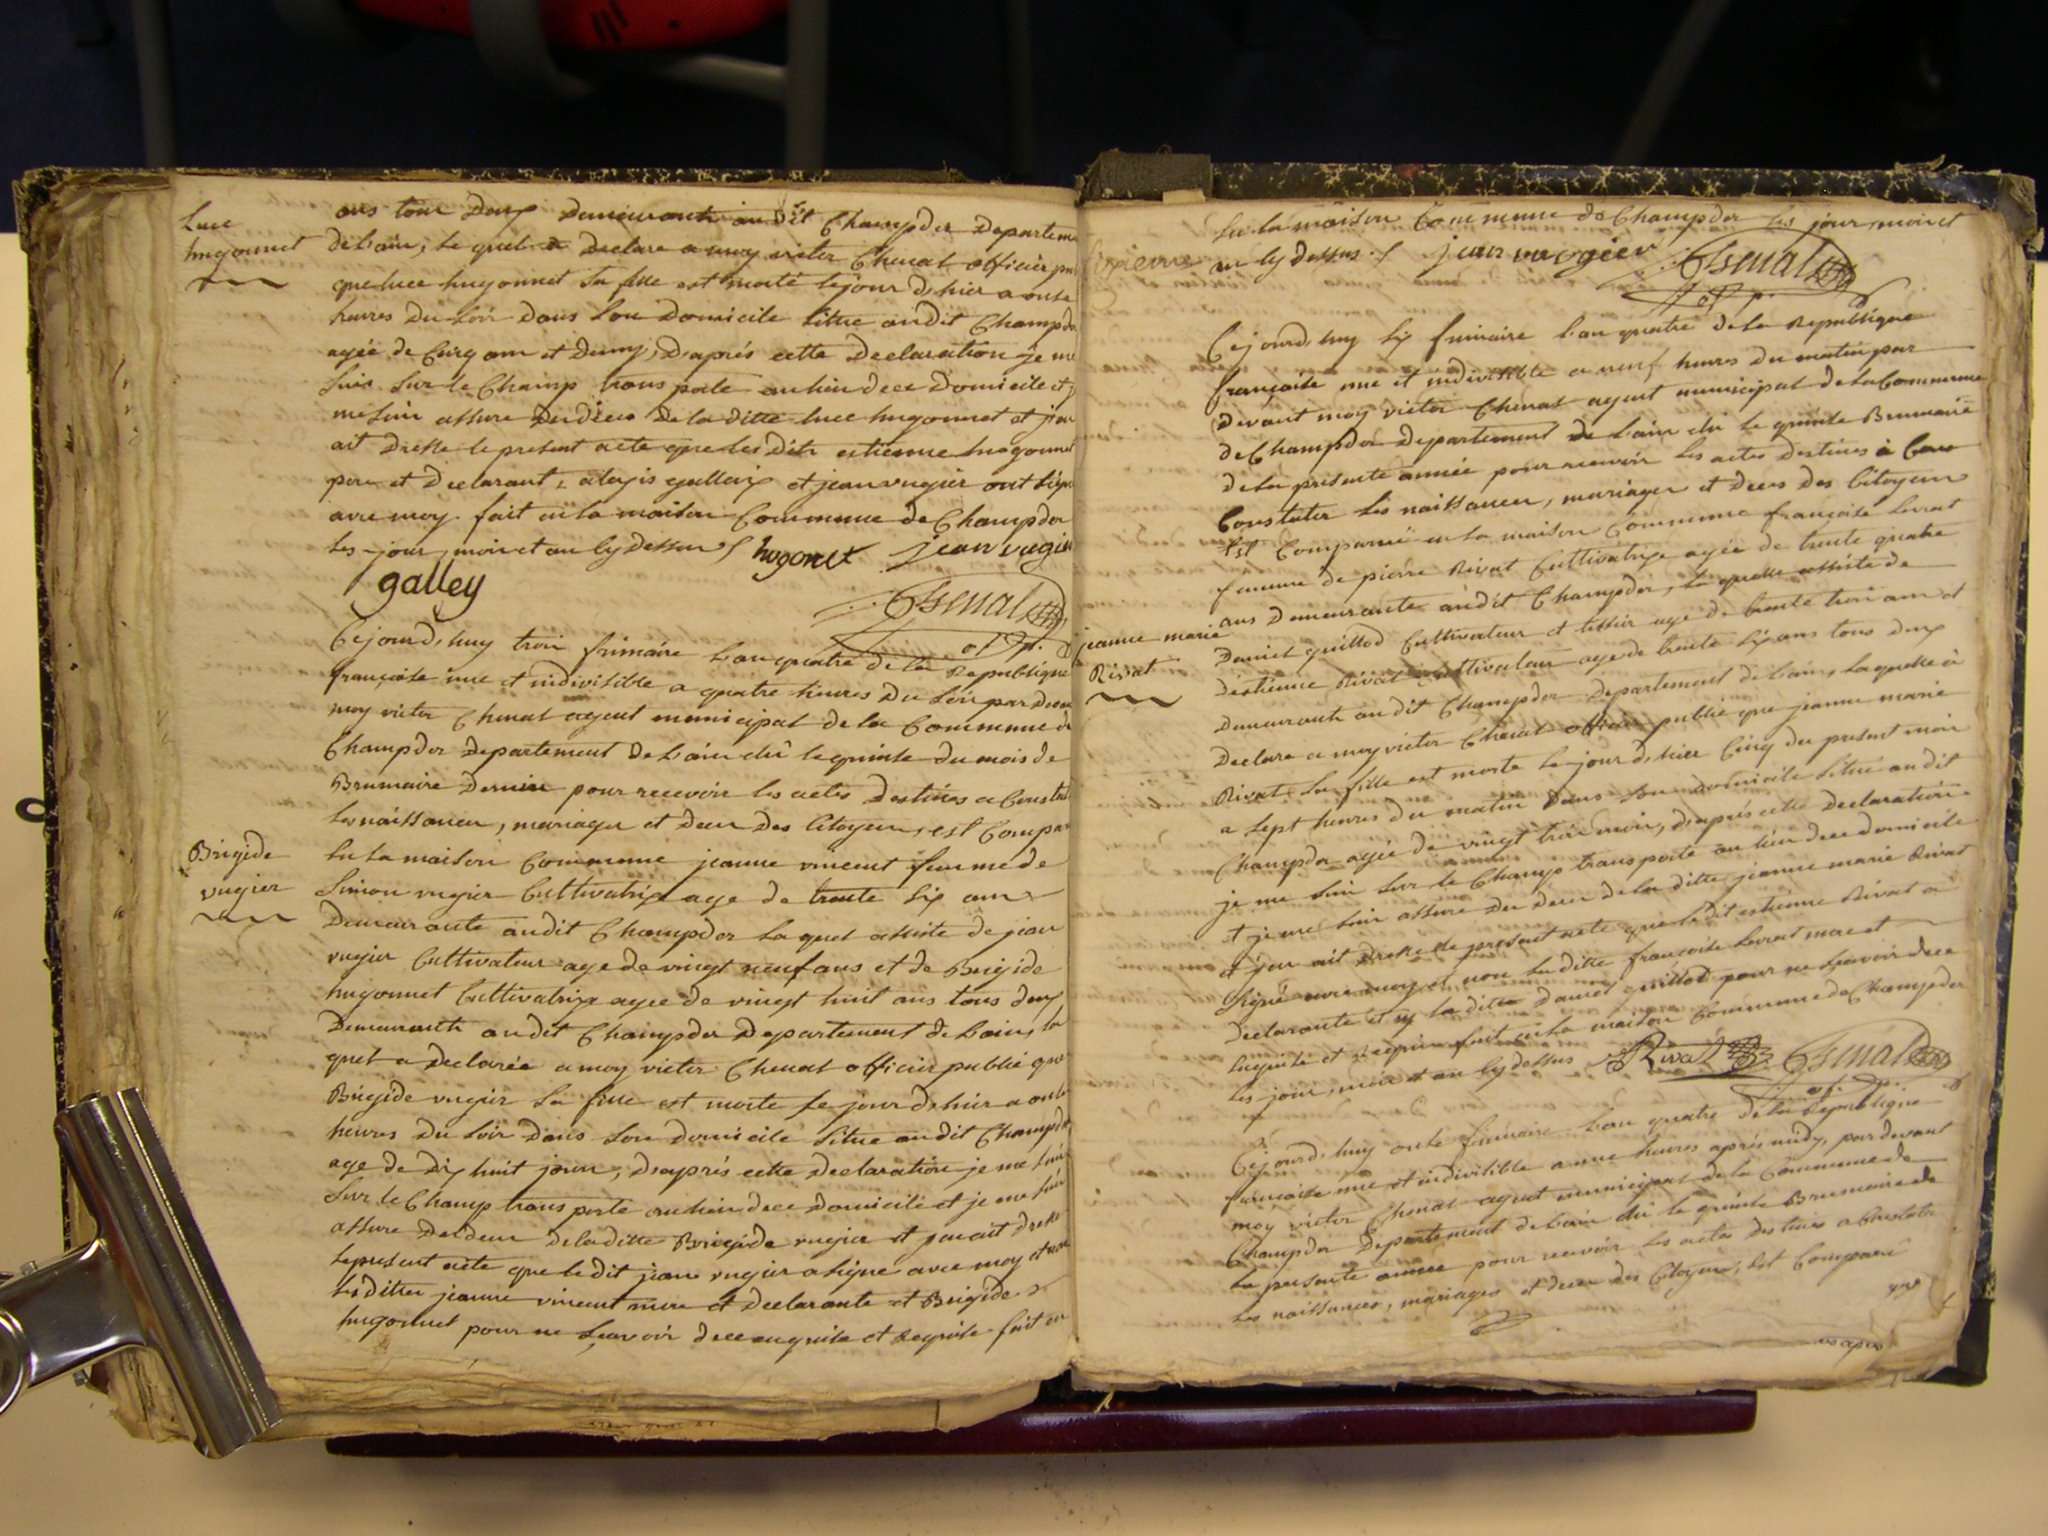 Luce
hugonnet
ans tous Deux Demeurants au Dit Champdor Departeme
de Lain, Le quel a Declare a moy victor Chenat officier pu
que luce hugonnet sa fille est morte le jour d,hier a onse
heures Du Soir Dans Son Domicile Situe audit Champdor
agée de Cinq ans et Demy, D,aprés cette Declaration je me
Suis Sur le Champ trans porte au lieu dece Domicile et j
me Suis assure Du Décés De la Ditte luce hugonnet et j'en
ait Dressé le present acte que les Dits estienne hugonnet
pere et Declarant, alexis gallaix et jean vugier ont Signé
avec moy. fait en la maison Commune de Champdor
Les jour, mois et an Cy Dessus / hugonet jean vugier
galley Chenal
of. p.
Cejourd,huy trois frimaire L'an quatre de la Republique
françoise une et indivisible a quatre heures Du Soir par Devan
moy victor Chenat agent municipal de la Commune de
Champdor Departement De Lain élu le quinse du mois de
Brumaire Dernier pour recevoir les actes Destinés a Constat
Les naissances, mariages et Deces Des Citoyens, est Compar
Brigide
vugier
En la maison Commune jeanne vincent femme de
Simon vugier Cultivatrix age de trente Six ans
Demeurante audit Champdor La quel assiste de jean
vugier Cultivateur age de vingt neuf ans et de Brigide
hugonnet Cultivatrix agee de vingt huit ans tous deux
Demeurants au dit Champdor Departement de Lain, la
quel a Declarée a moy victor Chenat officier public que
Brigide vugier Sa fille est morte le jour d,hier a onse
heures Du Soir Dans Son domicile Situe au dit Champdor
age de Dix huit jours, D,aprés cette Declaration je me Suis
Sur le Champ trans porte au lieu dece Domicile et je me Suis
assure Du Deces De la Ditte Brigide vugier et j'en ait Dresse
Le present acte que le dit jean vugier a Signe avec moy et non
Les dittes jeanne vincent mere et Declarante et Brigide
hugonnet pour ne Scavoir dece enquise et Requise. fait en
En la maison Commune de Champdor les jour, mois et
an Cy Dessus. / jean vugier Chenal
of. p.
Cejourd,huy Six frimaire L'an quatre De la Republique
françoise une et indivisible a neuf heures Du matin par
Devant moy victor Chenat agent municipal de la Commune
de Champdor Departement De Lain élu le quinse Brumaire
De la presente année pour recevoir les actes Destines à Cons
Constater Les naissances, mariages et Deces Des Citoyens
Est Comparuë en la maison Commune françoise Levrat
femme de pierre Rivat Cultivatrix agée de trente quatre
ans Demeurante audit Champdor, La quelle assiste de
jeanne marie
Rivat
Daniel guillod Cultivateur et tissier age de trente trois ans et
d'estienne Rivat Cultivateur age de trente Six ans tous deux
Demeurants au dit Champdor Departement de Lain, La quelle à
Declare a moy victor Chenat officier public que jeanne marie
Rivat Sa fille est morte le jour d,hier Cinq du present mois
a Sept heures du matin Dans Son Domicile Situé au dit
Champdor agée de vingt trois mois, D,aprés cette Declaration
je me Suis Sur le Champ trans porte au lieu dece domicile
et je me Suis assure Du Deces de la ditte jeanne marie Rivat
et j'en ait Dressé le present acte que le dit estienne Rivat a
Signé avec moy et non La ditte francoise Levrat mere et
Declarante et ny le dit Daniel guillod pour ne Scavoir dece
Enquise et Requise fait en la maison Commune de Champdor
Les jour, mois et an Cy dessus Rivat Chenal
of. p.
Cejourd,huy onse frimaire L'an quatre de la Republique
françoise une et indivisible a une heures aprés midy, par devant
moy victor Chenat agent municipal de la Commune de
Champdor Departement de Lain élu le quinse Brumaire de
La presente annee pour recevoir les actes destinés a Constater
Les naissances, mariages et deces des Citoyens, Est Comparu